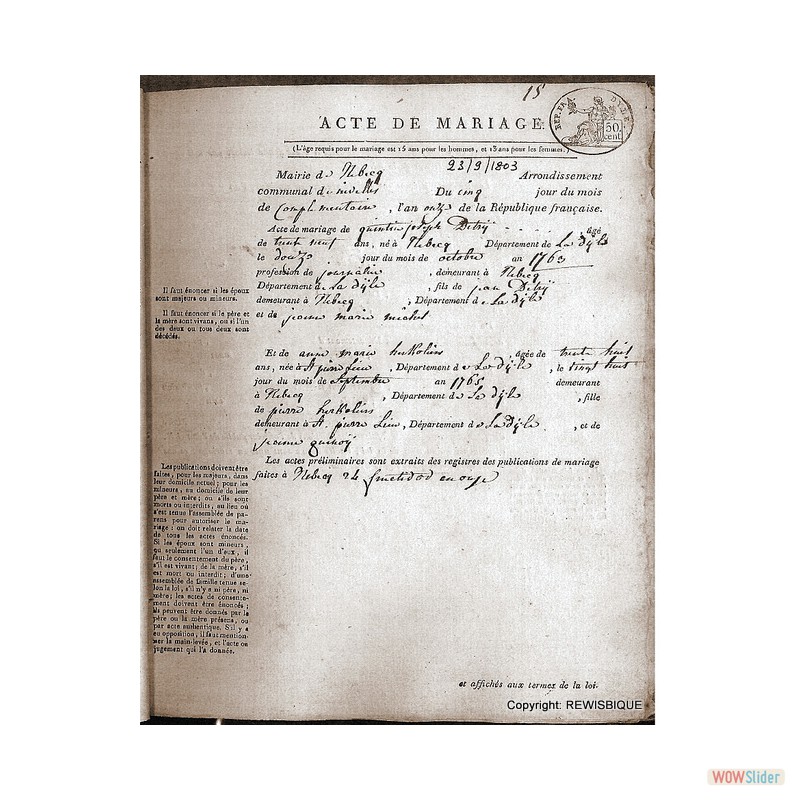 15
REP. FRA. DYLE
50 cent.
ACTE DE MARIAGE.
(L'âge requis pour le mariage est 15 ans pour les hommes, et 13 ans pour les femmes.)
23/9/1803
Mairie de Rebecq Arrondissement
communal de nivelles Du cinq jour du mois
de Complementaire, l'an onze de la République française.
Acte de mariage de quintin joseph Detry âgé
de trente neuf ans, né à Rebecq Département de La dyle
le douze jour du mois de octobre an 1763
profession de journalier, demeurant à Rebecq
Département de La dyle, fils de jean Detry
demeurant à Rebecq, Département de La dyle
et de jeanne marie michel
Et de anne marie herkolins agée de trente huit
ans, née à St, Département de La dyle, le vingt huit
jour du mois de septembre an 1765 demeurant
à Rebecq, Département de La dyle, fille
de pierre herkolins
demeurant à St. pierre, Département de La Dyle, et de
jeanne
Les actes préliminaires sont extraits des registres des publications de mariage
faites à Rebecq 24 fructidor an onze
et affichés aux termes de la loi.
Il faut énoncer si les époux
sont majeurs ou mineurs.
Il faut énoncer si le père et
la mère sont vivans, ou si l'un
des deux ou tous deux sont
décédés.
Les publications doivent être
faites, pour les majeurs, dans
leur domicile actuel; pour les
mineurs, au domicile de leur
père et mère; ou s'ils sont
morts ou interdits, au lieu où
s'est tenue l'assemblée de pa-
rens pour autoriser le ma-
riage: on doit relater la date
de tous les actes énoncés.
Si les époux sont mineurs,
ou seulement l'un d'eux, il
faut le consentement du père,
s'il est vivant; de la mère, s'il
est mort ou interdit; d'une
assemblée de famille tenue se-
lon la loi, s'il n'y a ni père, ni
mère; les actes de consente-
ment doivent être énoncés;
ils peuvent être donnés par le
père ou la mère présens, ou
par acte authentique. S'il y a
eu opposition, il faut mention-
ner la main-levée, et l'acte ou
jugement qui l'a donnée.
Copyright: REWISBIQUE
WOWSlider